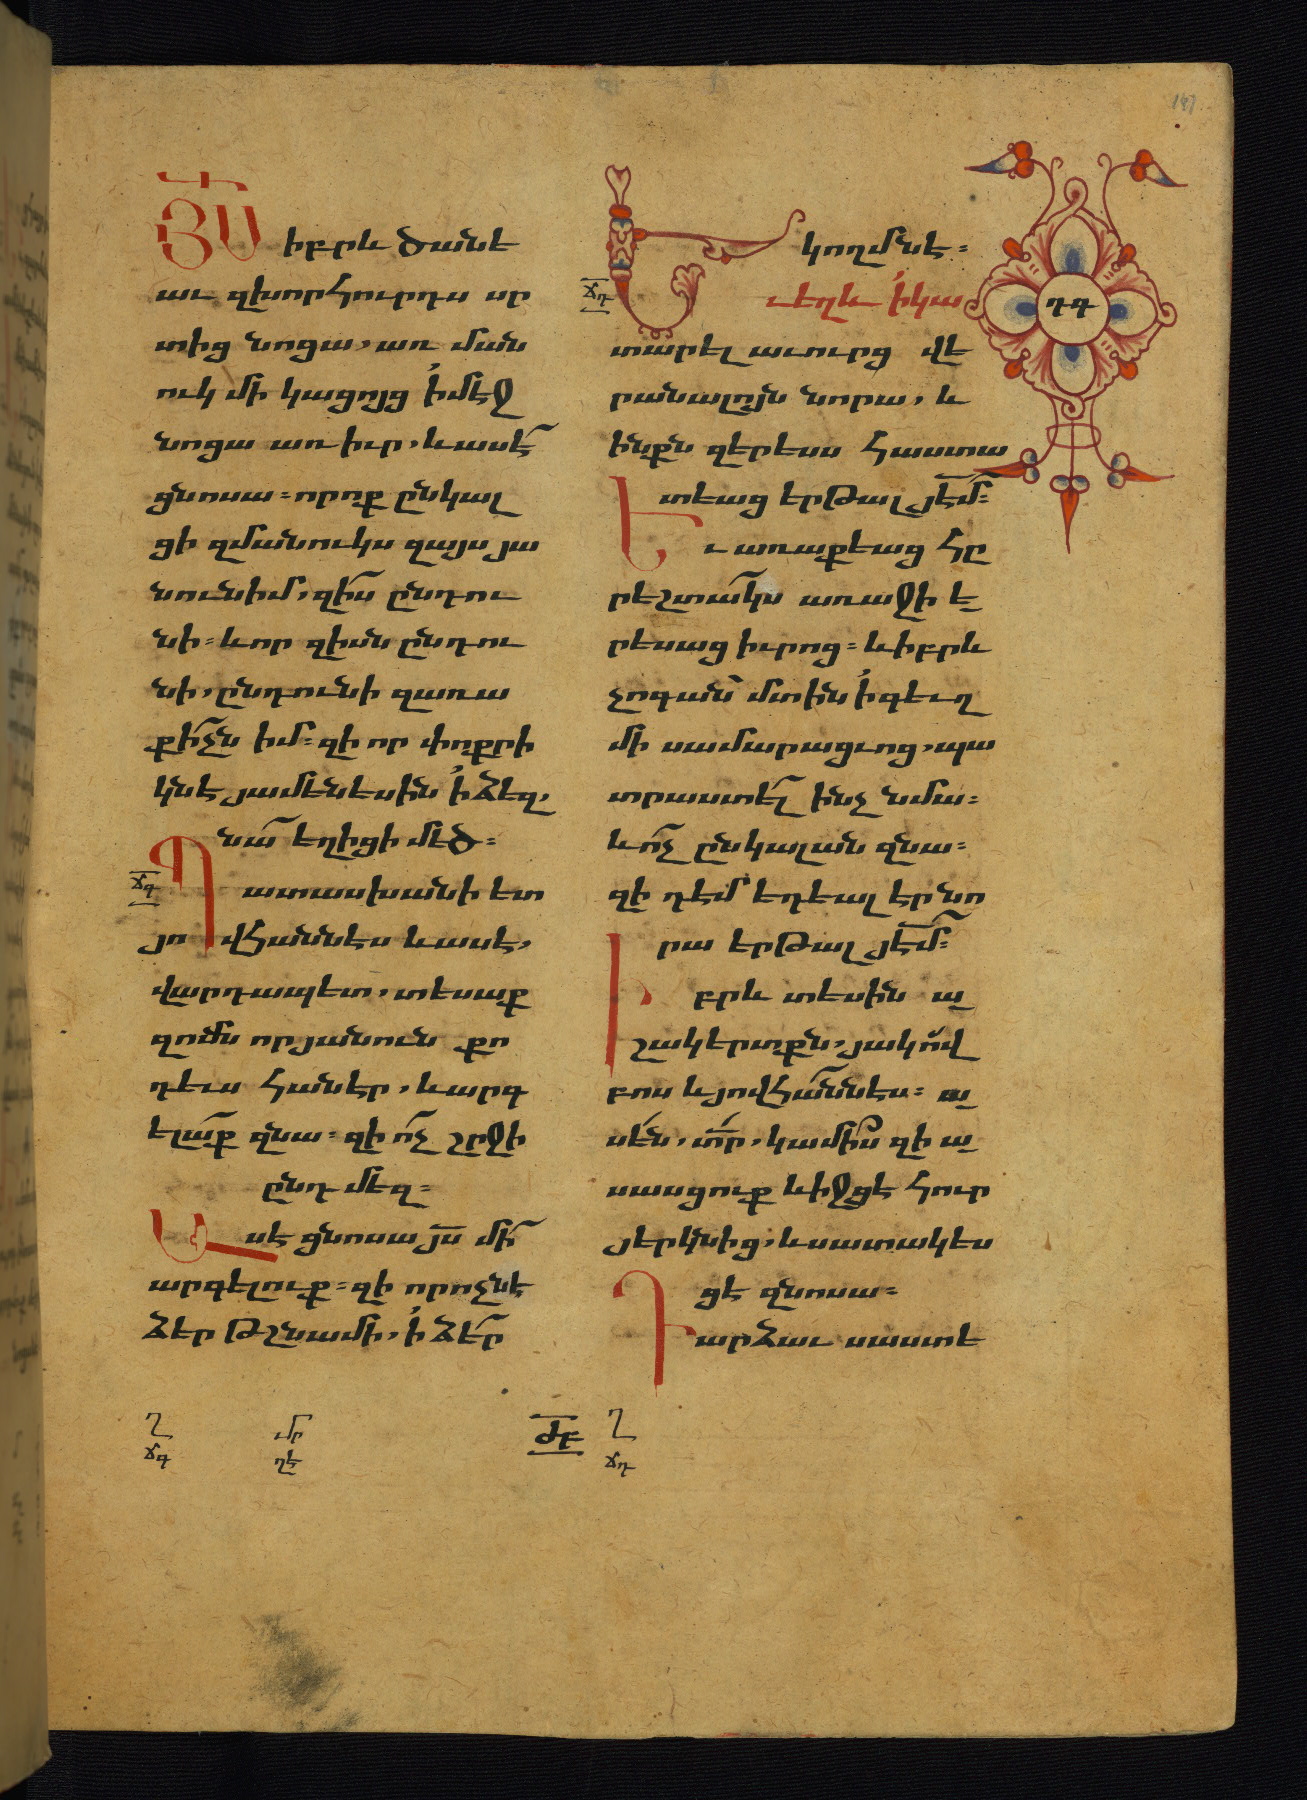 ՅՍ իբրև ծանե
աւ զխորհուրդս սր
տից նոցա, առ ման
ուկ մի կացոյց ի մէջ
նոցա առ իւր, և ասէ
ցնոսա։ որոք ընկալ
ցի զմանուկս զայս յա
նուն իմ, զիս ընդու
նի։ և որ զիսն ընդու
նի, ընդունի զառա
քիչն իմ։ զի որ փոքրի
կն է յամենեսին ի ձեզ,
նա եղիցի մեծ։
ճգ
Պատասխանի ետ
յովհաննէս և ասէ,
վարդապետ, տեսաք
զոմն որ յանուն քո
դեւս հանէր, և արգ
ելաք զնա։ զի ոչ շրջի
ընդ մեզ։
Ասէ ցնոսա յս մի
արգելուք։ զի որ ոչն է
ձեր թշնամի, ի ձեր
կողմն է։
ճդ
Եւ եղև ի կա
տարել աւուրց վե
րանալոյն նորա, և
ինքն զերեսս հաստա
տեաց երթալ յէմ։
Եւ առաքեաց հը
րեշտակս առաջի ե
րեսաց իւրոց։ և իբրև
չոգան մտին ի գեւղ
մի սամարացւոց, պա
տրաստել ինչ նմա։
և ոչ ընկալան զնա։
զի դէմ եդեալ էր նո
րա երթալ յէմ։
Իբրև տեսին ա
շակերտքն, յակով
բոս և յովհաննէս։ ա
սեն, տր, կամիս զի ա
սասցուք և իջցէ հուր
յերկնից, և սատակես
ցէ զնոսա։
Դարձաւ սաստե
դգ
Ղ
ճգ
մր
ղե
ժբ
Ղ
ճդ